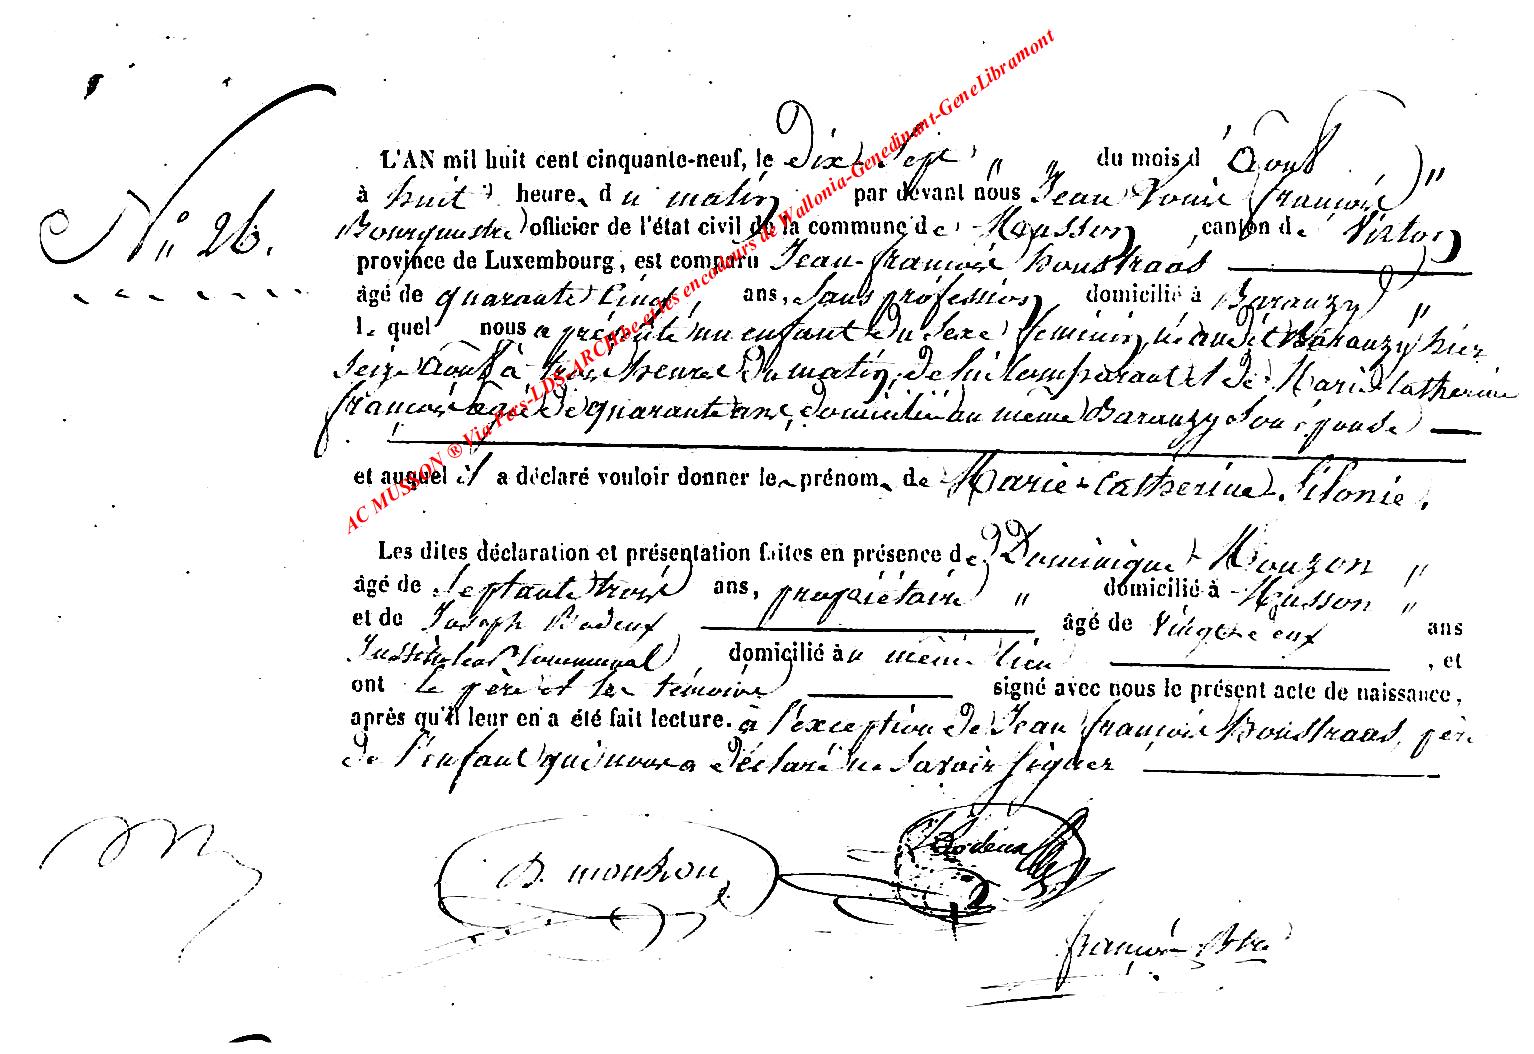 AC MUSSON ® Via Pers-LDS-ARCH.be et les encodeurs de Wallonia-Genedinant-GeneLibramont
L'AN mil huit cent cinquante-neuf, le Dix-Sept " " du mois d'Août "
N° 26. à huit heure du matin par devant nous Jean Louis françois
Bourgmestre officier de l'état civil de la commune de Musson, canton de Virton
province de Luxembourg, est comparu Jean-françois Houstraas
âgé de quarante cinq ans, Sans profession, domicilié à Baranzy "
le quel nous a présenté un enfant du Sexe féminin, né au dit Baranzy hier
Seize Août à trois heures du matin, de lui Comparant et de Marie Catherine
françois âgée de quarante ans, domiciliée au même Baranzy Son épouse
et auquel il a déclaré vouloir donner les prénoms de Marie-Catherine-
Les dites déclaration et présentation faites en présence de Dominique Mouzon "
âgé de Septante trois ans, propriétaire " domicilié à Musson "
et de Joseph Bodeux âgé de Vingt ans
Instituteur Communal, domicilié au même lieu, et
ont le père et les témoins signé avec nous le présent acte de naissance,
après qu'il leur en a été fait lecture. à l'exception de Jean françois Houstraas, père
de l'enfant qui nous a déclaré ne Savoir Signer
D. mouzon
Bodeux
françois